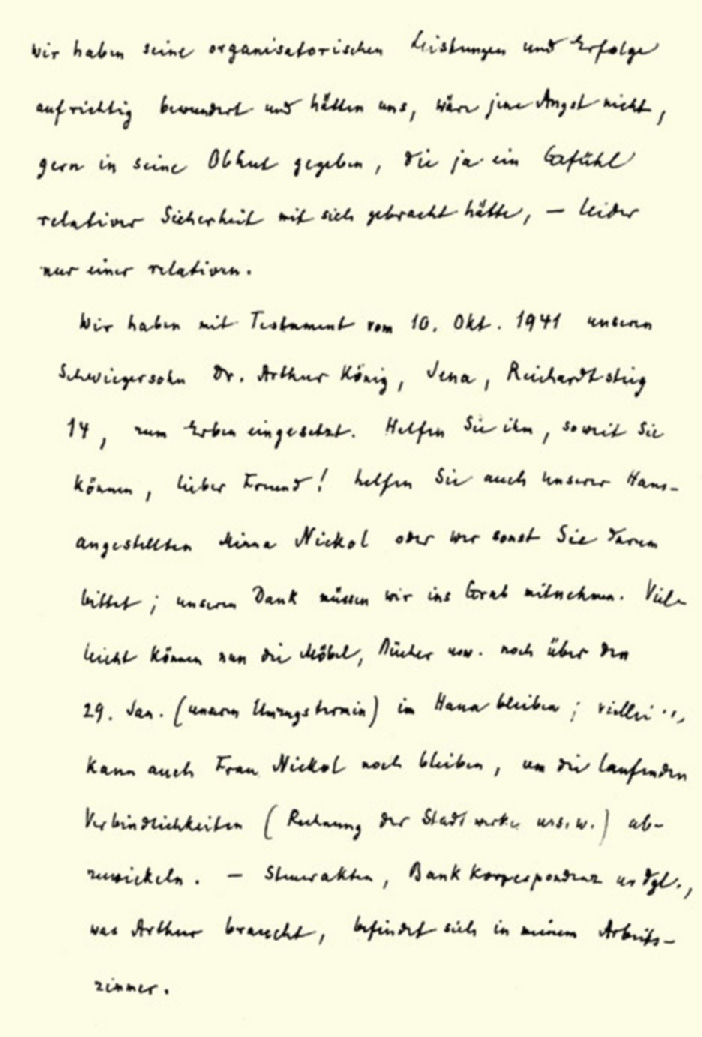 wir haben seine organisatorischen Leistungen und Erfolge
aufrichtig bewundert und hätten uns, wäre jene Angst nicht,
gern in seine Obhut gegeben, die ja ein Gefühl
relativer Sicherheit mit sich gebracht hätte, — leider
nur einer relativen.
Wir haben mit Testament vom 10. Okt. 1941 unseren
Schwiegersohn Dr. Arthur König, Jena, Reichardtstieg
14, zum Erben eingesetzt. Helfen Sie ihm, soweit Sie
können, lieber Freund! helfen Sie auch unserer Haus-
angestellten Minna Nickol oder wer sonst Sie darum
bittet; unseren Dank müssen wir ins Grab mitnehmen. Viel-
leicht können nun die Möbel, Bücher usw. noch über den
29. Jan. (unseren Umzugstermin) im Haus bleiben;
kann auch Frau Nickol noch bleiben, um die laufenden
Verbindlichkeiten (Rechnung der Stadtwerke u.s.w.) ab-
zuwickeln. — Steuerakten, Bankkorrespondenz u dgl.,
was Arthur braucht, befindet sich in meinem Arbeits-
zimmer.